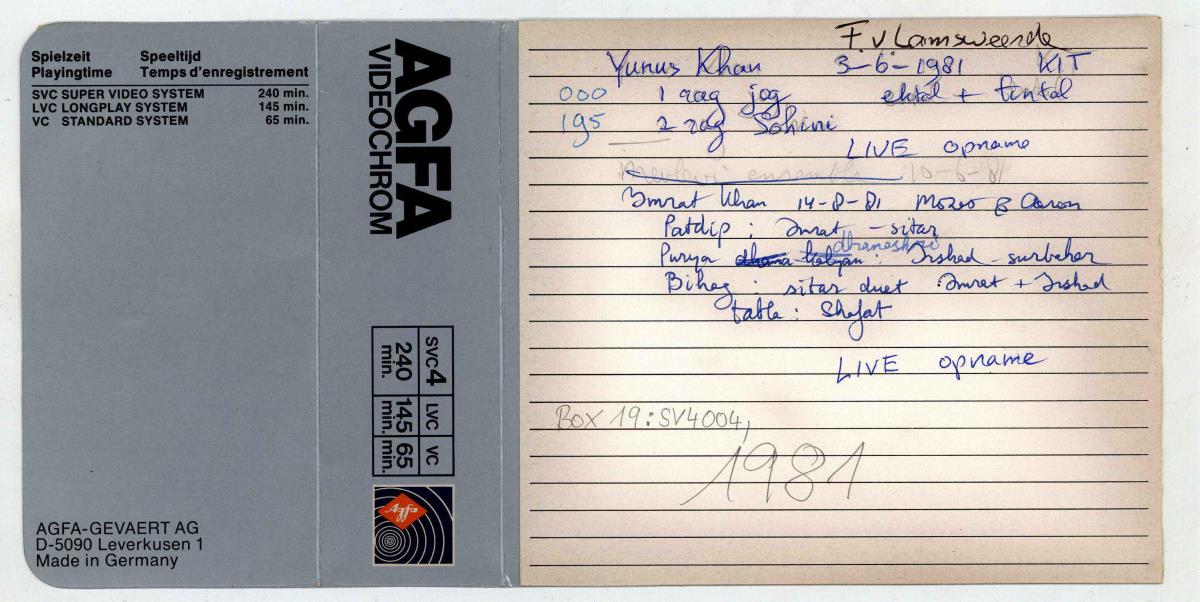 Spielzeit Speeltijd
Playingtime Temps d'enregistrement
SVC SUPER VIDEO SYSTEM 240 min.
LVC LONGPLAY SYSTEM 145 min.
VC STANDARD SYSTEM 65 min.
AGFA
VIDEOCHROM
SVC4 LVC VC
240 min. 145 min. 65 min.
Agfa
AGFA-GEVAERT AG
D-5090 Leverkusen 1
Made in Germany
F. v Lamsweerde
Yunus Khan 3-6-1981 KIT
000 1 rag jog ektal + tintal
195 2 rag Sohini
LIVE opname
ensemble 10-6-81
Imrat Khan 14-8-81 Mozes & Aaron
Patdip: Imrat - sitar
dhaneshri
Purya kalyan: Irshad - surbahar
Bihag: sitar duet Imrat + Irshad
tabla: Shafat
LIVE opname
Box 19: SV4004,
1981